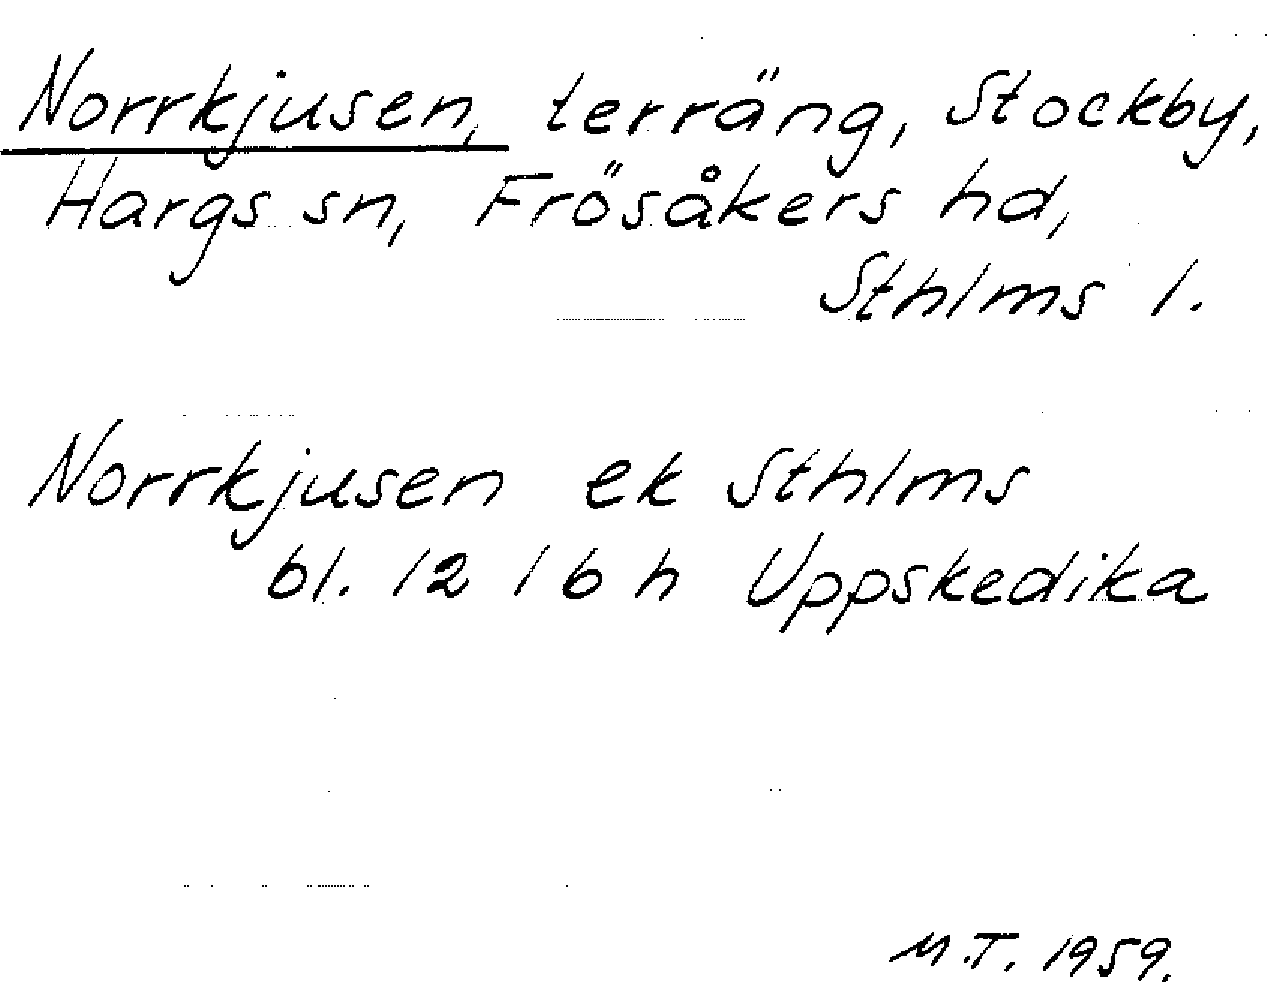 Norrkjusen, terräng, Stockby,
Hargs sn, Frösåkers hd,
Sthlms l.
Norrkjusen ek Sthlms
bl. 12 I 6 h Uppskedika
M.T. 1959.